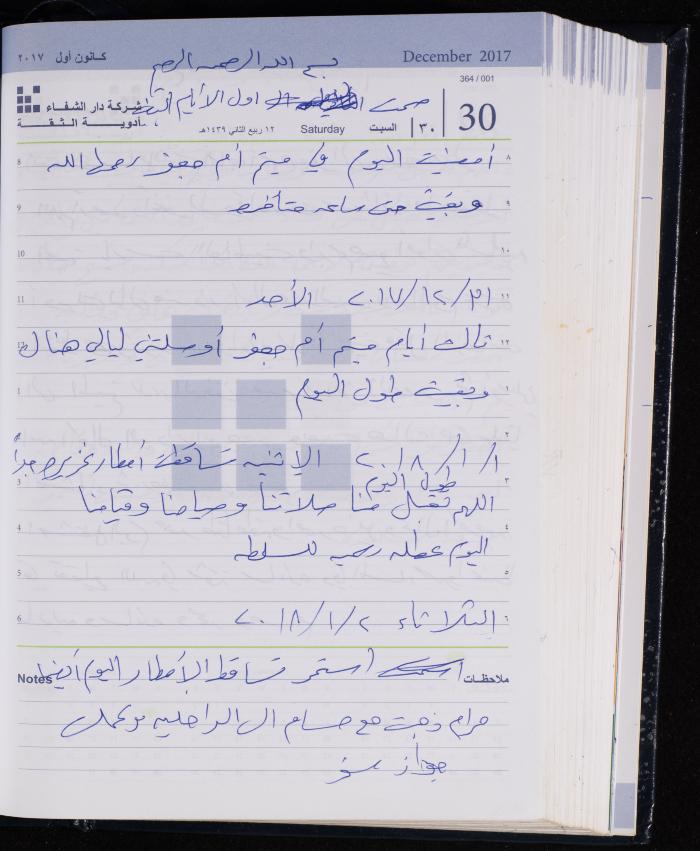 كانون أول ٢٠١٧
December 2017
بسم الله الرحمن الرحيم
364 / 001
شركة دار الشفاء
لأدويــــة الـثـقــــة
صمت اول الأيام
30
٣٠
السبت
Saturday
١٢ ربيع الثاني ١٤٣٩هـ
8 أمضيت اليوم في ميتم أم جعفر رحمها الله ٨
9 وبقيت حتى ساعه متأخره ٩
10 ١٠
11 ٢٠١٧/١٢/٣١ الأحد ١١
12 ثالث أيام ميتم أم جعفر أوصلتني ليالي هناك ١٢
1 وبقيت طول اليوم ١
2 ٢
٢٠١٨/١/١ الاثنين تساقطت أمطار غزيره جداً
طول اليوم
3 ٣
اللهم تقبل منا صلاتنا وصيامنا وقيامنا
4 ٤
اليوم عطله رسميه للسلطه
5 ٥
6 الثلاثاء ٢٠١٨/١/٢ ٦
Notes استمر تساقط الأمطار اليوم أيضا ملاحظات
مرام ذهبت مع حسام الى الداخليه لعمل
جواز سفر